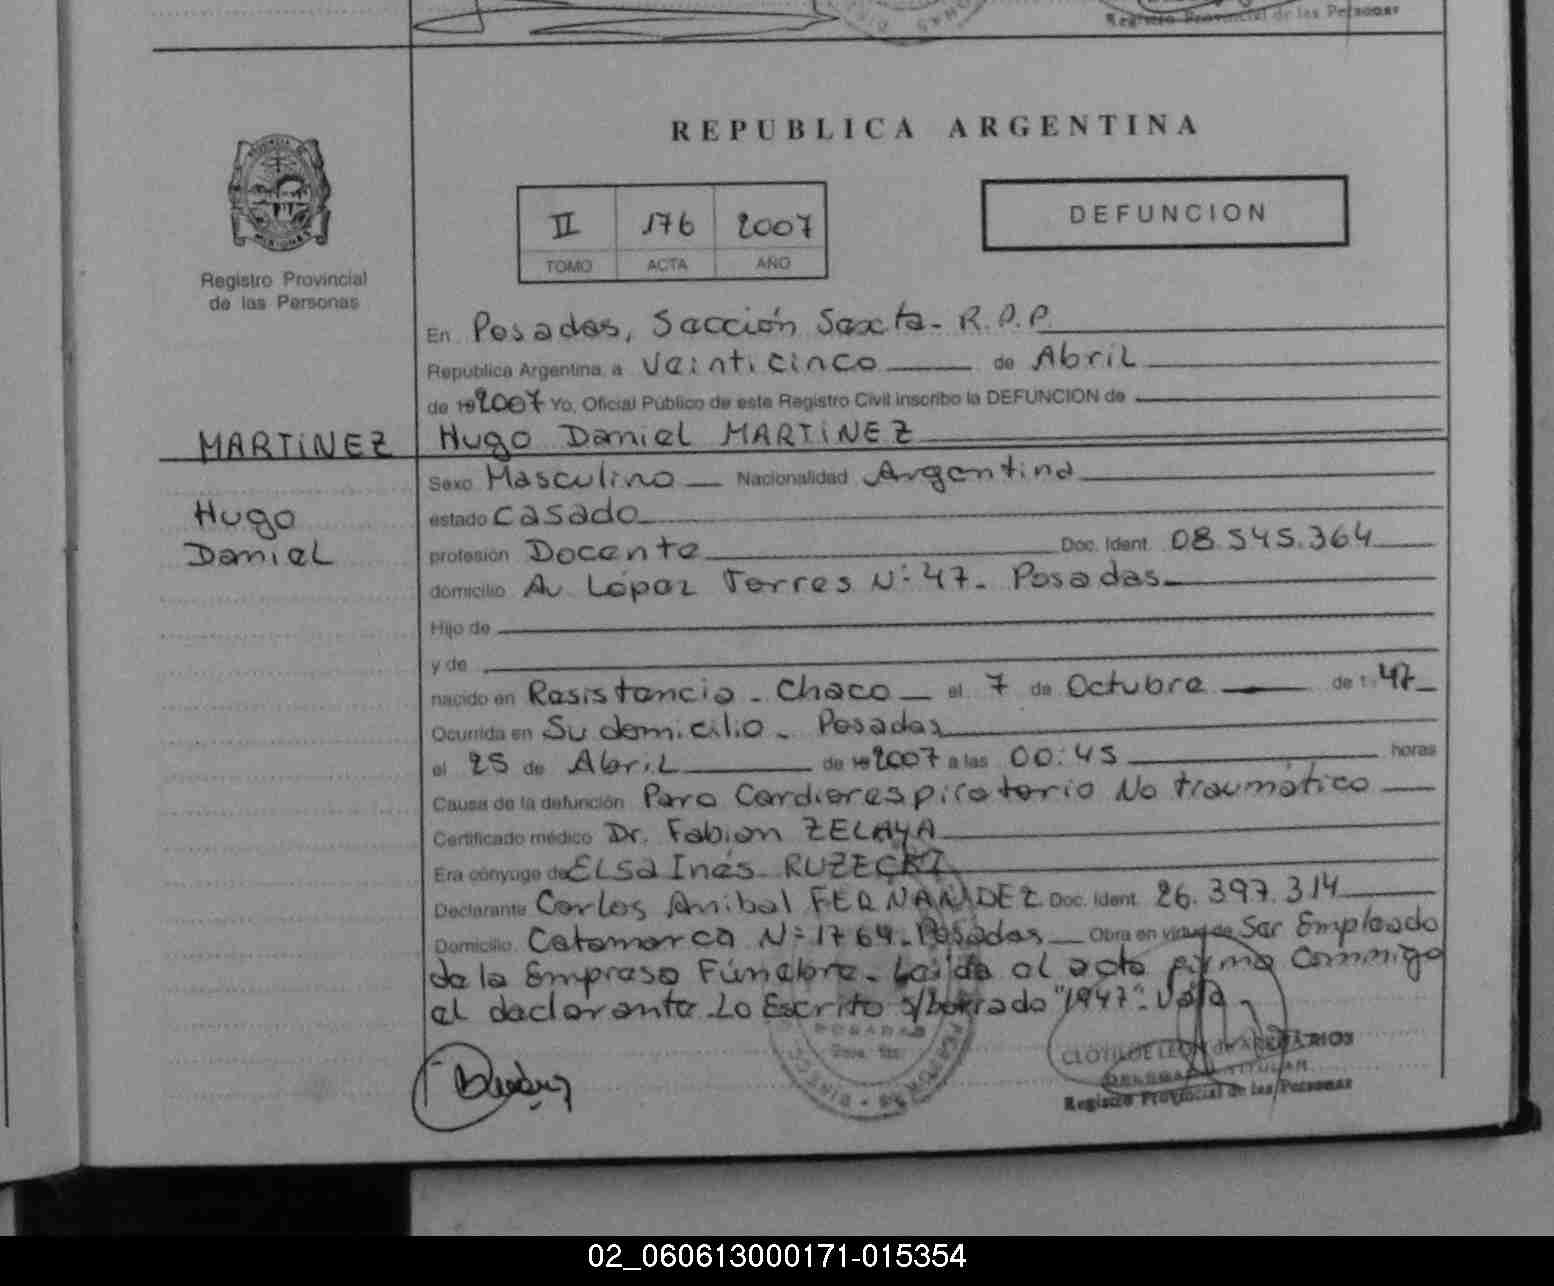 Registro Provincial de las Personas
REPUBLICA ARGENTINA
II 176 2007
TOMO ACTA AÑO
DEFUNCION
Registro Provincial
de las Personas
En Posadas, Sección Sexta - R.P.P.
Republica Argentina, a Veinticinco de Abril
de 19 2007 Yo, Oficial Público de este Registro Civil inscribo la DEFUNCION de
MARTiNEZ Hugo Daniel MARTiNEZ
Sexo Masculino Nacionalidad Argentina
Hugo
estado Casado
Daniel
profesión Docente Doc. Ident. 08.545.364
domicilio Av López Torres N: 47 - Posadas
Hijo de
y de
nacido en Resistencia - Chaco el 7 de Octubre de 1 47
Ocurrida en Su domicilio - Posadas
el 25 de Abril de 19 2007 a las 00:45 horas
Causa de la defunción Paro Cardiorespiratorio No traumático
Certificado médico Dr. Fabian ZELAYA
Era cónyuge de ELsa Inés RUZECKI
Declarante Carlos Anibal FERNANDEZ Doc. Ident. 26.397.314
Domicilio Catamarca N: 1764 - Posadas Obra en virtud de Ser Empleado
de la Empresa Fúnebre - Leída el acta firma Conmigo
el declarante - Lo Escrito s/borrado "1947" - Vale
POSADAS
CLOTILDE LEON de ARECIARIOS
DELEGADA TITULAR
Registro Provincial de las Personas
02_060613000171-015354